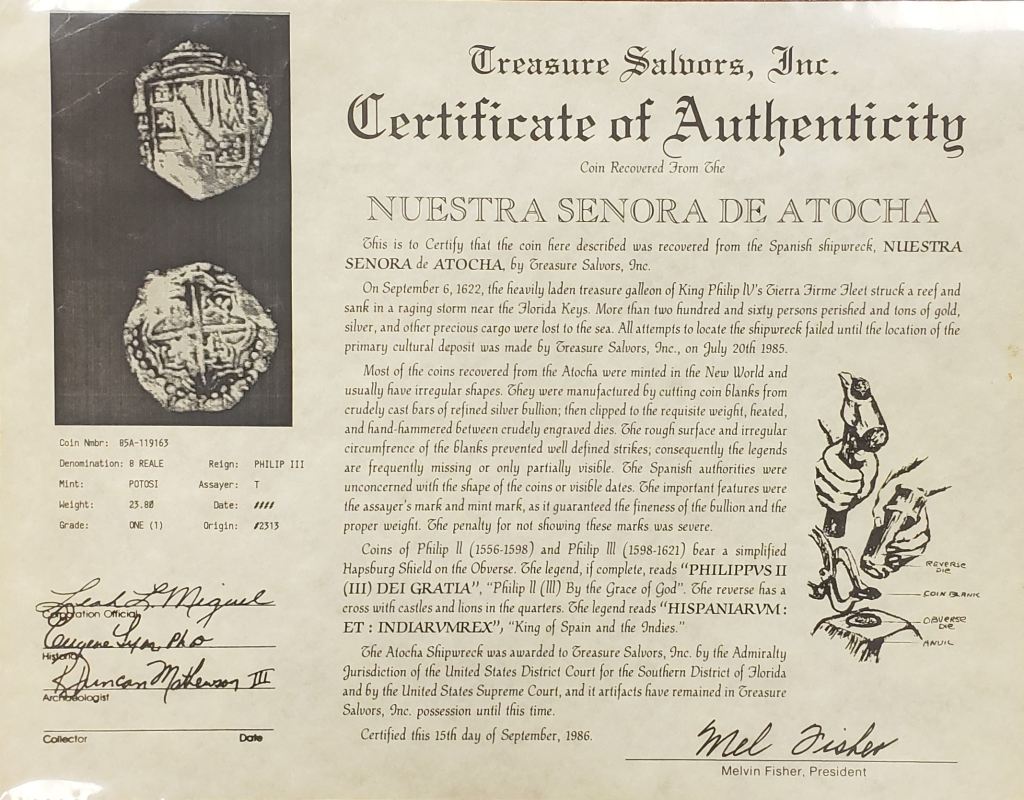 Treasure Salvors, Inc.
Certificate of Authenticity
Coin Recovered From The
NUESTRA SENORA DE ATOCHA
This is to Certify that the coin here described was recovered from the Spanish shipwreck, NUESTRA
SENORA de ATOCHA, by Treasure Salvors, Inc.
On September 6, 1622, the heavily laden treasure galleon of King Philip IV's Tierra Firme Fleet struck a reef and
sank in a raging storm near the Florida Keys. More than two hundred and sixty persons perished and tons of gold,
silver, and other precious cargo were lost to the sea. All attempts to locate the shipwreck failed until the location of the
primary cultural deposit was made by Treasure Salvors, Inc., on July 20th 1985.
Most of the coins recovered from the Atocha were minted in the New World and
usually have irregular shapes. They were manufactured by cutting coin blanks from
crudely cast bars of refined silver bullion; then clipped to the requisite weight, heated,
and hand-hammered between crudely engraved dies. The rough surface and irregular
circumfrence of the blanks prevented well defined strikes; consequently the legends
are frequently missing or only partially visible. The Spanish authorities were
unconcerned with the shape of the coins or visible dates. The important features were
the assayer's mark and mint mark, as it guaranteed the fineness of the bullion and the
proper weight. The penalty for not showing these marks was severe.
Coins of Philip II (1556-1598) and Philip III (1598-1621) bear a simplified
Hapsburg Shield on the Obverse. The legend, if complete, reads "PHILIPPVS II
(III) DEI GRATIA", "Philip II (III) By the Grace of God". The reverse has a
cross with castles and lions in the quarters. The legend reads "HISPANIARVM :
ET : INDIARVMREX", "King of Spain and the Indies."
The Atocha Shipwreck was awarded to Treasure Salvors, Inc. by the Admiralty
Jurisdiction of the United States District Court for the Southern District of Florida
and by the United States Supreme Court, and it artifacts have remained in Treasure
Salvors, Inc. possession until this time.
Certified this 15th day of September, 1986.
Mel Fisher
Melvin Fisher, President
REVERSE
DIE
COIN BLANK
OBVERSE
DIE
ANVIL
Coin Nmbr: 85A-119163
Denomination: 8 REALE Reign: PHILIP III
Mint: POTOSI Assayer: T
Weight: 23.80 Date: ####
Grade: ONE (1) Origin: #2313
Leah L. Miguel
Corporation Official
Eugene Lyon PhD
Historian
Duncan Mathewson III
Archaeologist
Collector Date